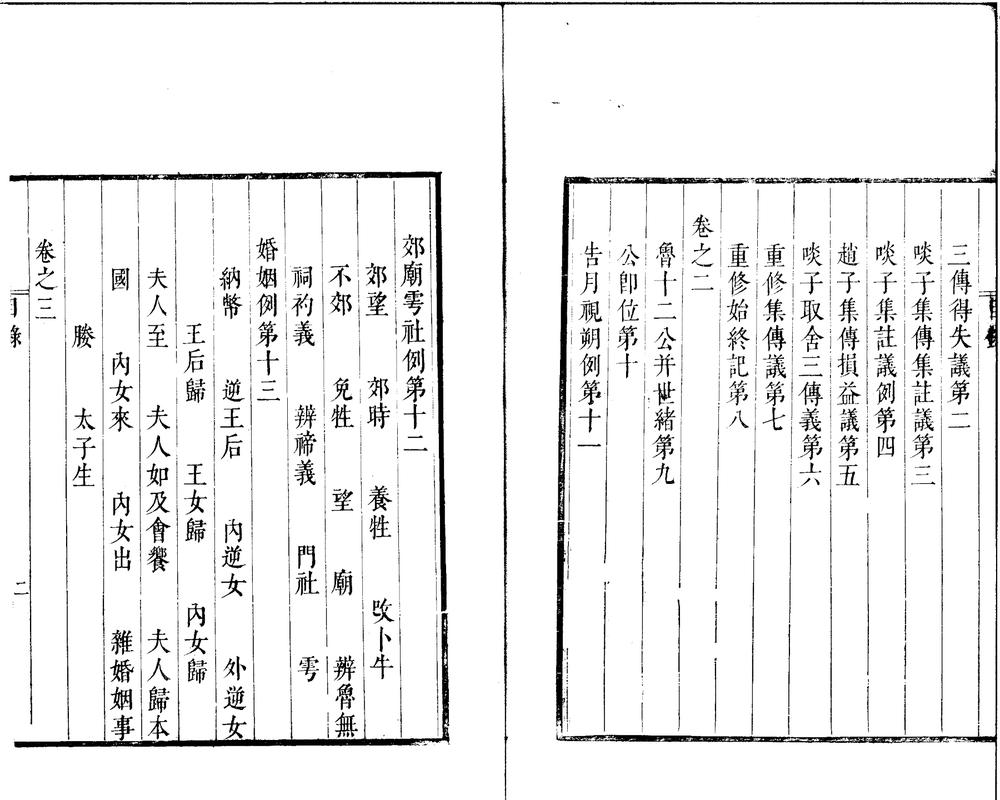 三傳得失議第二
啖子集傳集註議第三
啖子集註議例第四
趙子集傳損益議第五
啖子取舍三傳義第六
重修集傳議第七
重修始終記第八
卷之二
魯十二公并世緒第九
公卽位第十
告月視朔例第十一
郊廟雩社例第十二
郊望 郊時 養牲 改卜牛
不郊 免牲 望 廟 辨魯無
祠礿義 辨禘義 門社 雩
婚姻例第十三
納幣 逆王后 內逆女 外逆女
王后歸 王女歸 內女歸
夫人至 夫人如及會饗 夫人歸本
國 內女來 內女出 雜婚姻事
媵 太子生
卷之三
目錄
二